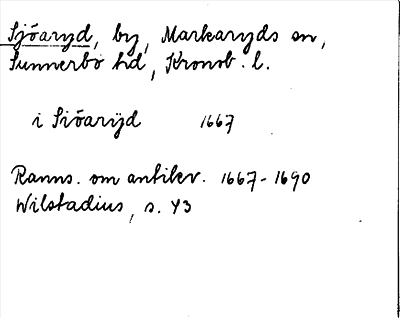 Sjöaryd, by, Markaryds sn,
Sunnerbo hd, Kronob. l.
i Siöarÿd 1667
Ranns. om antikv. 1667-1690
Wilstadius, s. 43